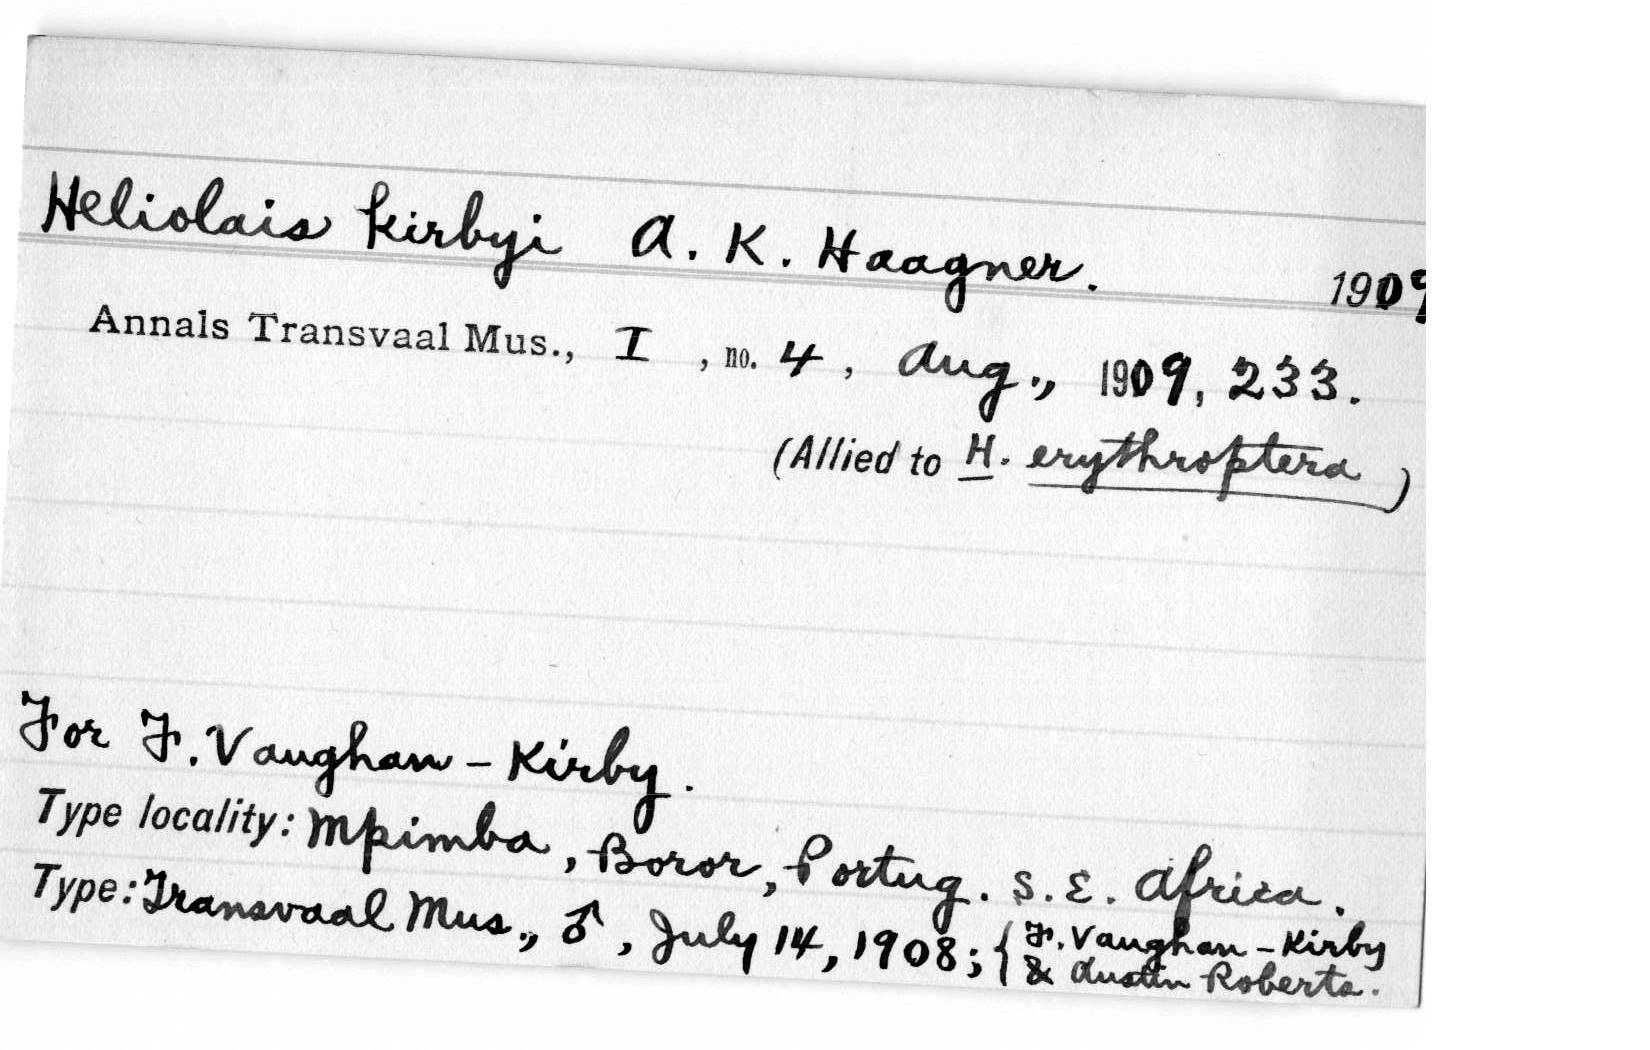 Heliolais kirbyi A. K. Haagner. 1909
Annals Transvaal Mus., I , no. 4 , Aug., 1909, 233.
(Allied to H. erythroptera )
For F. Vaughan-Kirby.
Type locality: Mpimba, Boror, Portug. S. E. Africa.
Type: Transvaal Mus., ♂, July 14, 1908; { F. Vaughan-Kirby
& Austin Roberts.